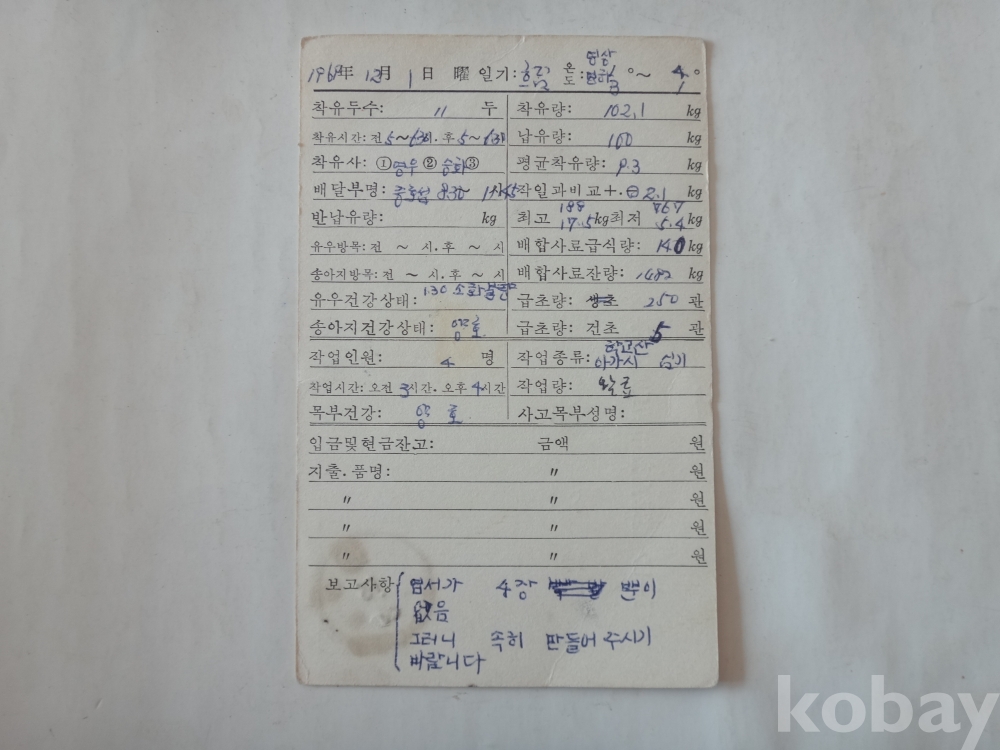 196 年 12月 1日 曜 일기: 흐림 온도: 영상 ° ~ 4°
착유두수: 11 두 착유량: 102.1 kg
착유시간: 전 5~6.30시. 후 5~6.30 납유량: 100 kg
착유사: ① 영우 ② 승화 ③ 평균착유량: 9.3 kg
배달부명: 8.30~ 작일과비교+.⊖ 2.1 kg
반납유량: kg 최고 188 17.5kg 최저 767 5.4kg
유우방목: 전 ~ 시. 후 ~ 시 배합사료급식량: 140 kg
송아지방목: 전 ~ 시. 후 ~ 시 배합사료잔량: 1482 kg
유우건강상태: 130 소화불량 급초량: 생초 250 관
송아지건강상태: 양호 급초량: 건초 5 관
작업인원: 4 명 작업종류: 아가시
작업시간: 오전 3시간. 오후 4시간 작업량: 완료
목부건강: 양호 사고목부성명:
입금및현금잔고: 금액 원
지출. 품명: 〃 원
〃 〃 원
〃 〃 원
〃 〃 원
보고사항 엽서가 4장 밖이
없음
그러니 속히 만들어 주시기
바랍니다
kobay